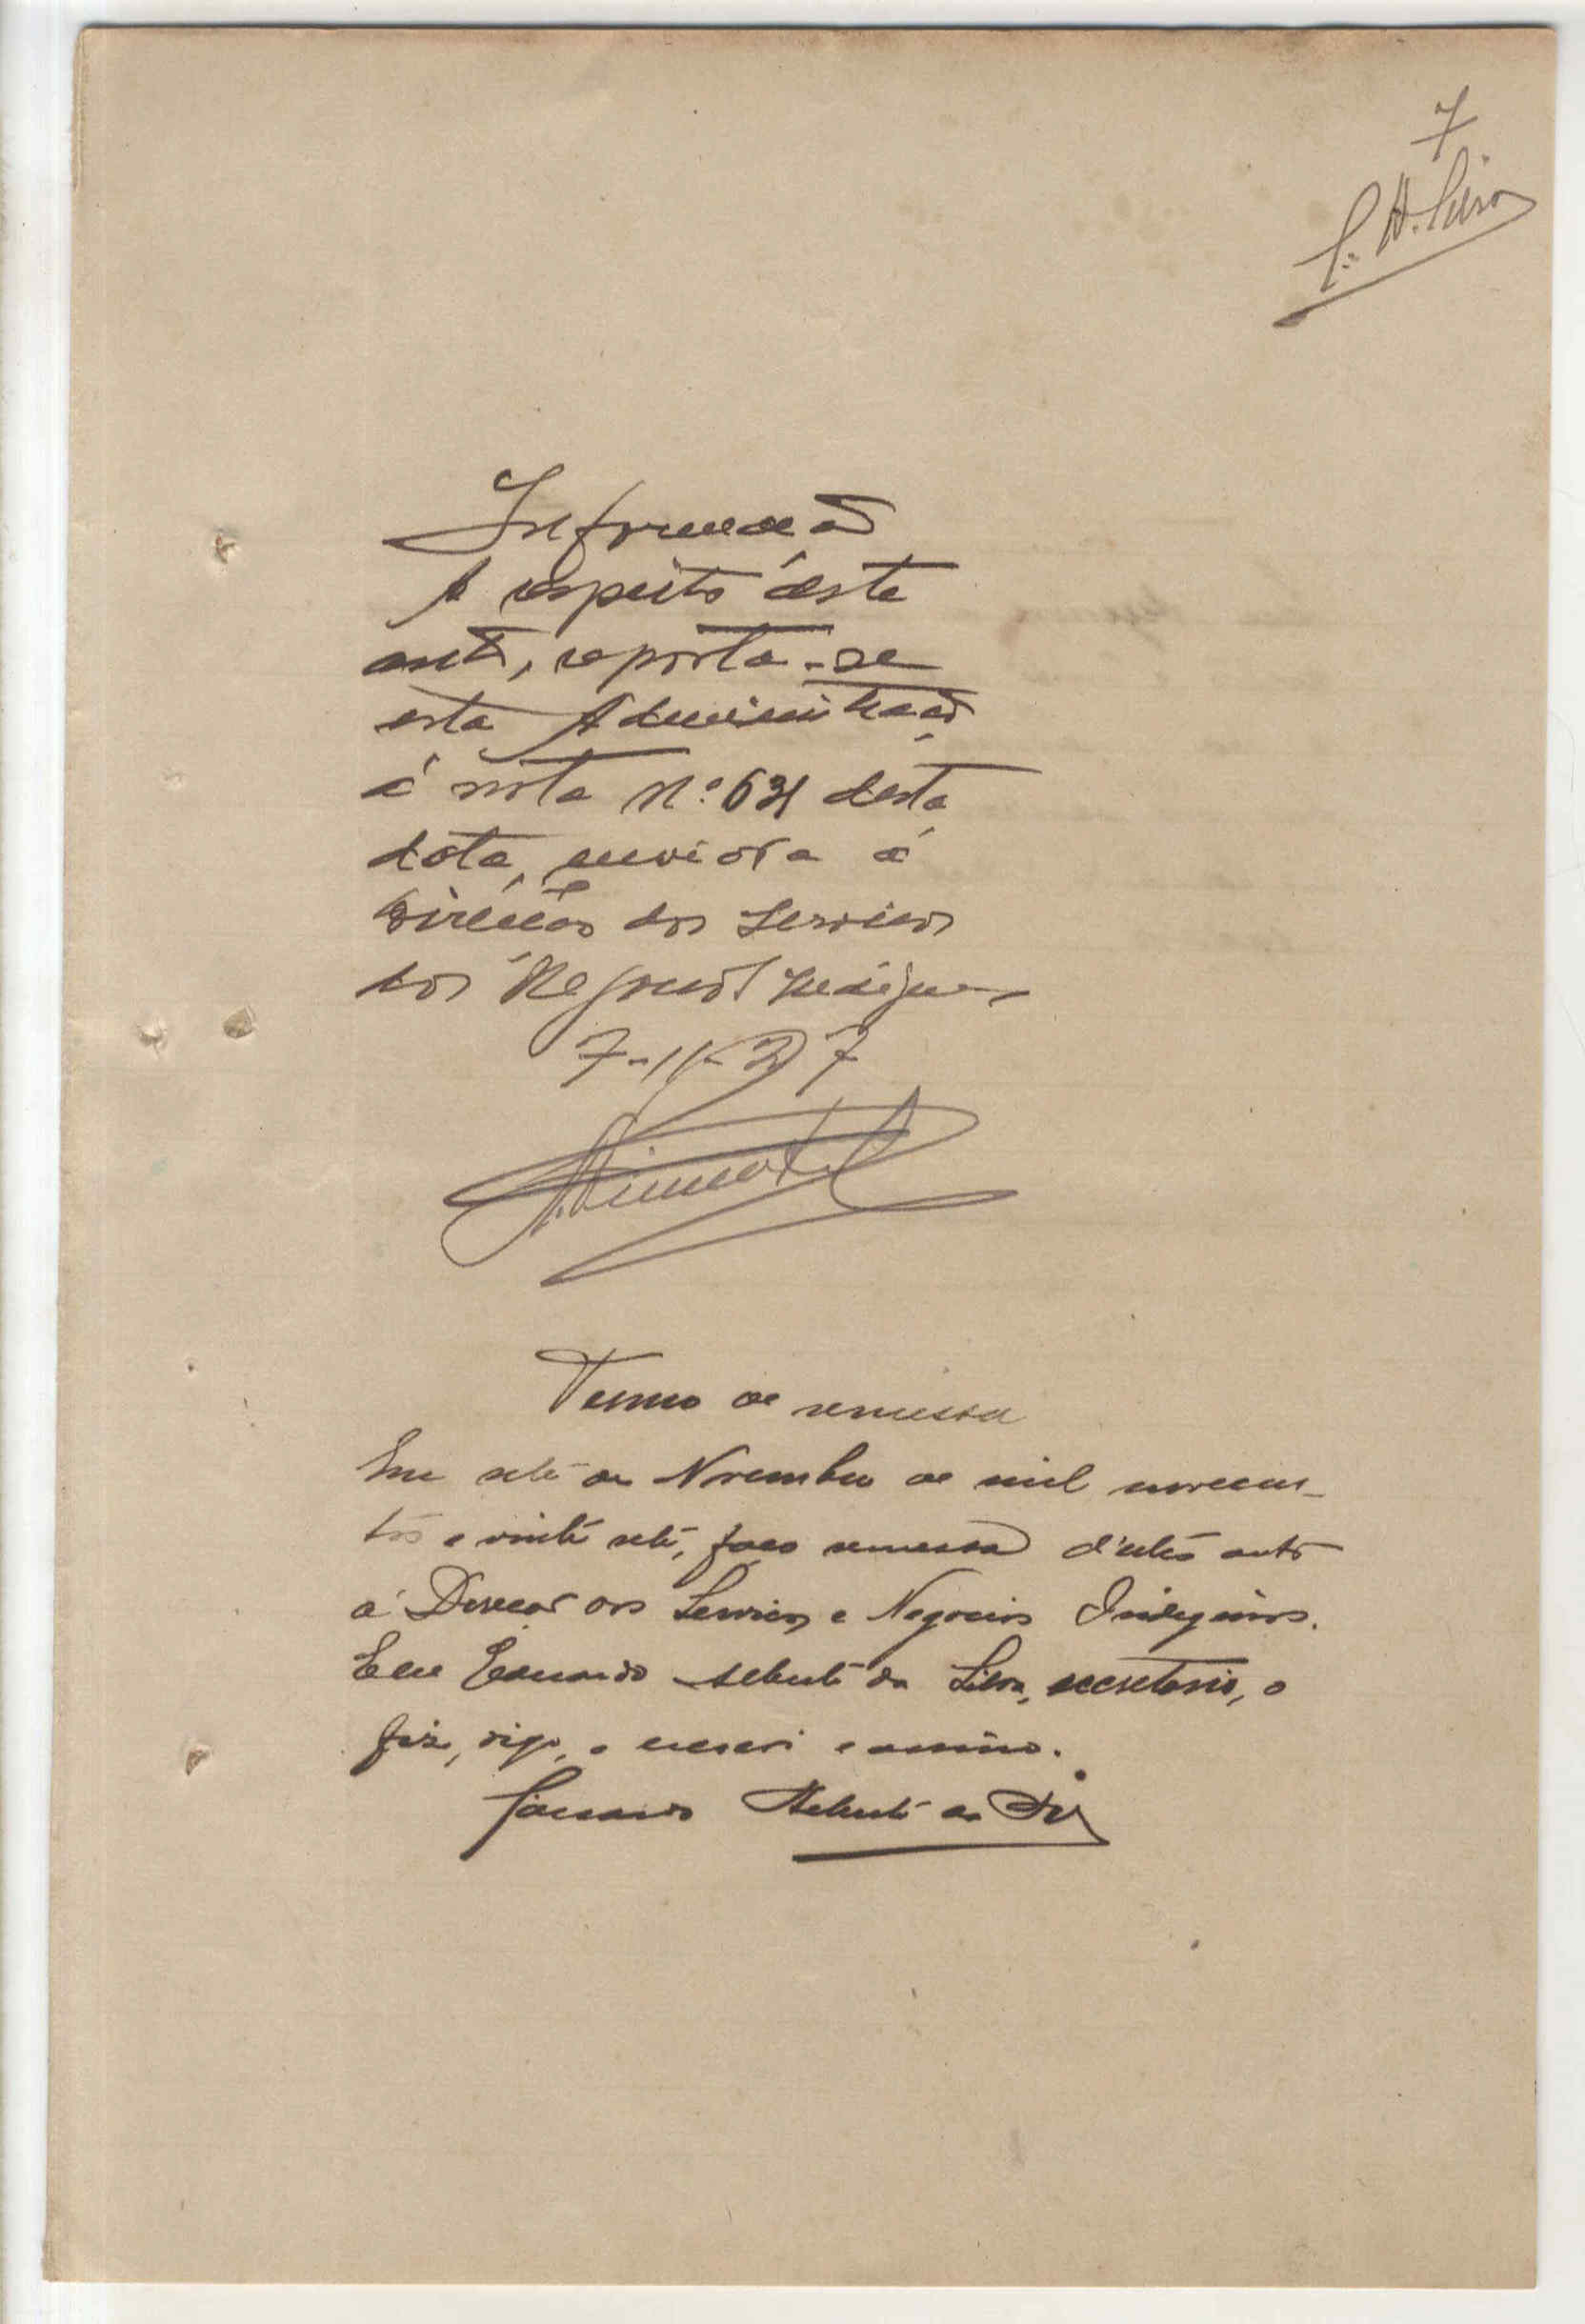 7
E. A. Silva
Informação
A respeito dêste
auto, reporta-se
esta Administração
á nota Nº 631 desta
data, enviada á
Direcção dos Serviços
dos Negocios Indigenas
7-11-27
Termo de remessa
Em sete de Novembro de mil novecen-
tos e vinte sete, faço remessa d'este auto
á Direcção dos Serviços e Negocios Indigenas.
E eu Eduardo Alberto da Silva, secretario, o
fiz, digo, o escrevi e assino.
Eduardo Alberto da Silva